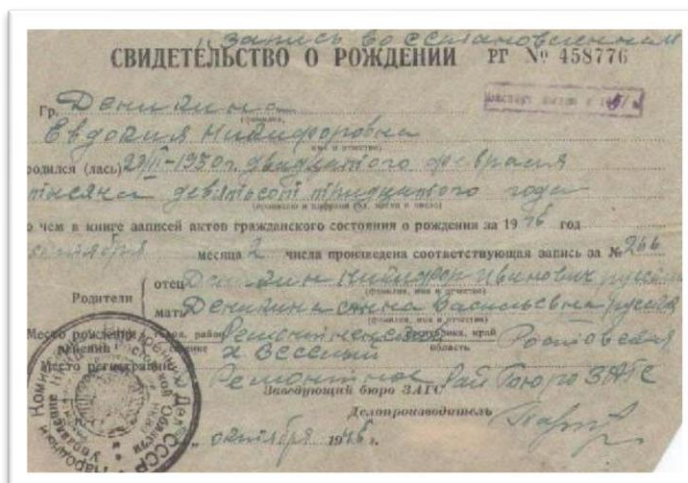 Запись восстановленная
СВИДЕТЕЛЬСТВО О РОЖДЕНИИ РГ № 458776
Гр. Деникина
(фамилия)
Евдокия Никифоровна
имя и отчество
родился (лась) 1930 г. двадцатого февраля
тысяча девятьсот тридцатого года
(прописью и цифрами год, месяц и число)
о чем в книге записей актов гражданского состояния о рождении за 1946 год
месяца 2 числа произведена соответствующая запись за № 266
Родители
отец Никифор Иванович русский
(фамилия, имя и отчество)
мать Деникина Анна Васильевна русская
(фамилия, имя и отчество)
Место рождения район Ремонтненский республика, край Ростовская
селение х Веселый область
Место регистрации Ремонтное Рай Бюро ЗАГС
Заведующий бюро ЗАГС
Делопроизводитель
октября 1946 г.